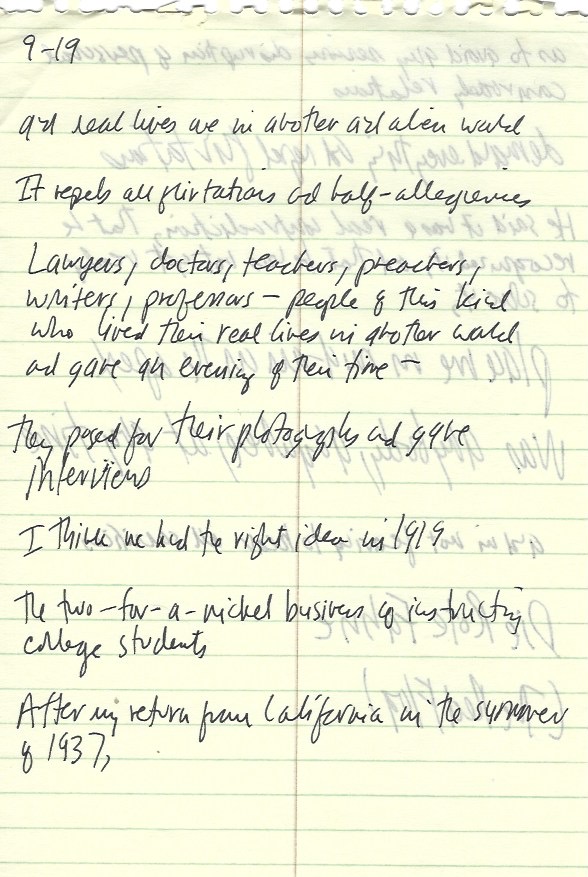 9-19
and real lives are in another and alien world
It repels all flirtations and half-allegiances
Lawyers, doctors, teachers, preachers,
writers, professors – people of this kind
who lived their real lives in another world
and gave an evening of their time –
they posed for their photographs and gave
interviews
I think we had the right idea in 1919
The two-for-a-nickel business of instructing
college students
After my return from California in the summer
of 1937,